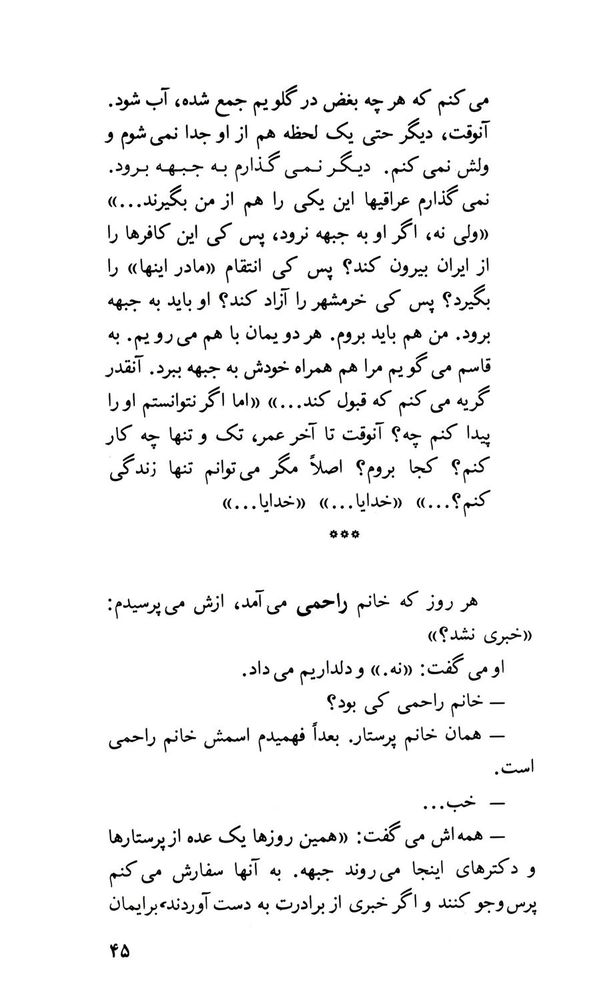 می کنم که هر چه بغض در گلویم جمع شده، آب شود.
آنوقت، دیگر حتی یک لحظه هم از او جدا نمی شوم و
ولش نمی کنم. دیگر نمی گذارم به جبهه برود.
نمی گذارم عراقیها این یکی را هم از من بگیرند...»
«ولی نه، اگر او به جبهه نرود، پس کی این کافرها را
از ایران بیرون کند؟ پس کی انتقام «مادر اینها» را
بگیرد؟ پس کی خرمشهر را آزاد کند؟ او باید به جبهه
برود. من هم باید بروم. هر دویمان با هم می رویم. به
قاسم می گویم مرا هم همراه خودش به جبهه ببرد. آنقدر
گریه می کنم که قبول کند...» «اما اگر نتوانستم او را
پیدا کنم چه؟ آنوقت تا آخر عمر، تک و تنها چه کار
کنم؟ کجا بروم؟ اصلاً مگر می توانم تنها زندگی
کنم؟...» «خدایا...» «خدایا...»
***
هر روز که خانم راحمی می آمد، ازش می پرسیدم:
«خبری نشد؟»
او می گفت: «نه.» و دلداریم می داد.
— خانم راحمی کی بود؟
— همان خانم پرستار. بعداً فهمیدم اسمش خانم راحمی
است.
— خب...
— همه اش می گفت: «همین روزها یک عده از پرستارها
و دکترهای اینجا می روند جبهه. به آنها سفارش می کنم
پرس وجو کنند و اگر خبری از برادرت به دست آوردند، برایمان
۴۵